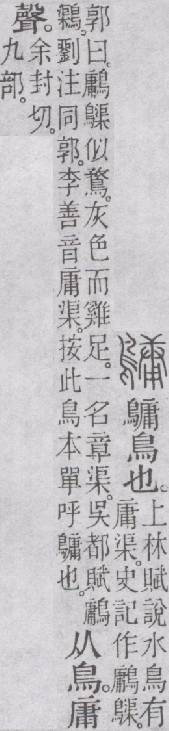 鷛 鷛鳥也。上林賦說水鳥有
庸渠。史記作鷛䴌。
郭曰。鷛䴌似鶩。灰色而雞足。一名章渠。吳都賦鷛
䴌。劉注同郭。李善音庸渠。按此鳥本單呼鷛也。从鳥。庸
聲。余封切。
九部。